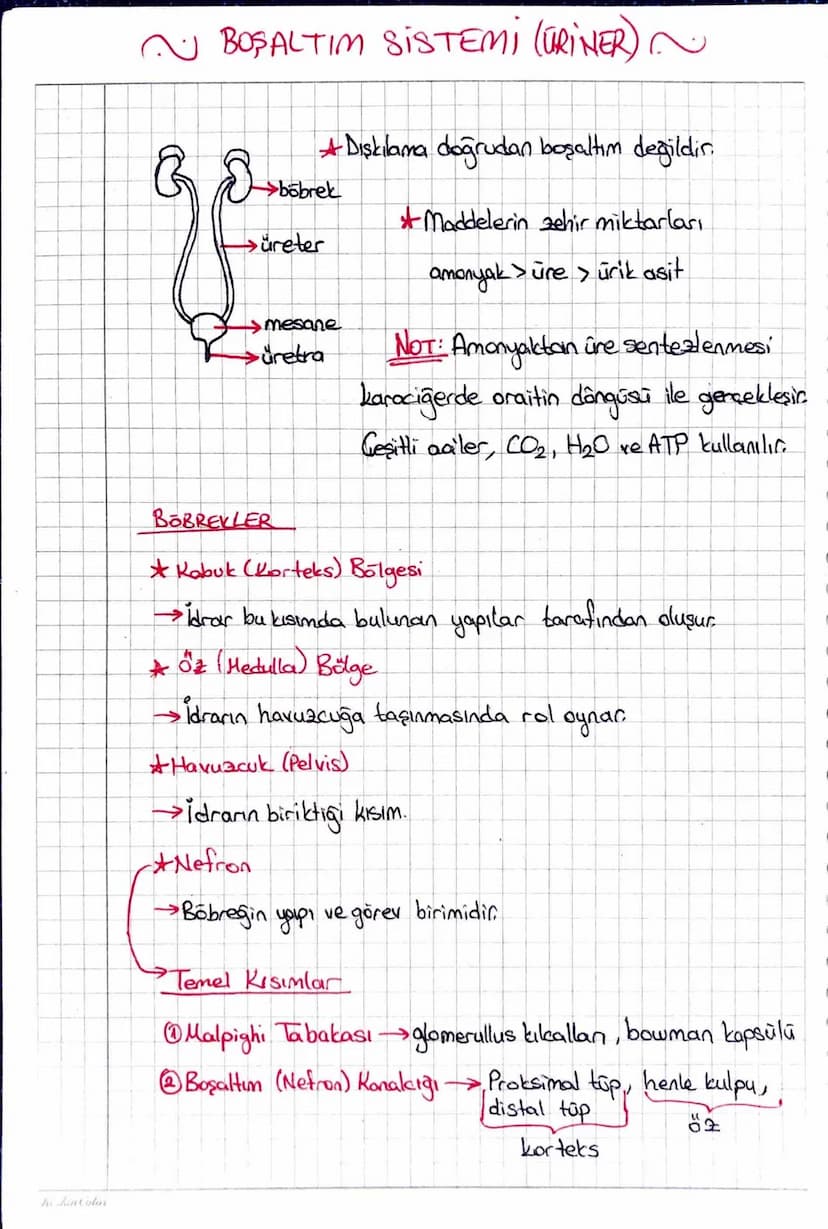 BOŞALTIM SİSTEMİ (ÜRİNER)
★ Dışkılama doğrudan boşaltım değildir.
böbrek
★ Maddelerin zehir miktarları
üreter
amonyak > üre > ürik asit
mesane
üretra
NOT: Amonyaktan üre sentezlenmesi
karaciğerde ornitin döngüsü ile gerçekleşir.
Çeşitli aa'ler, CO₂, H₂O ve ATP kullanılır.
BÖBREKLER
★ Kabuk (Korteks) Bölgesi
→ İdrar bu kısımda bulunan yapılar tarafından oluşur.
★ Öz (Medulla) Bölge
→ İdrarın havuzcuğa taşınmasında rol oynar.
★ Havuzcuk (Pelvis)
→ İdrarın biriktiği kısım.
★ Nefron
→ Böbreğin yapı ve görev birimidir.
→ Temel Kısımlar
① Malpighi Tabakası → glomerullus kılcalları, bowman kapsülü
② Boşaltım (Nefron) Kanalcığı → Proksimal tüp, henle kulpu,
distal tüp
öz
korteks